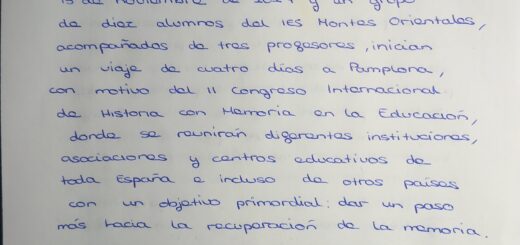 15 de noviembre de 2024 y un grupo
de diez alumnos del IES Montes Orientales,
acompañados de tres profesores, inician
un viaje de cuatro días a Pamplona,
con motivo del II Congreso Internacional
de Historia con Memoria en la Educación,
donde se reunirán diferentes instituciones,
asociaciones y centros educativos de
toda España e incluso de otros países
con un objetivo primordial: dar un paso
más hacia la recuperación de la memoria.